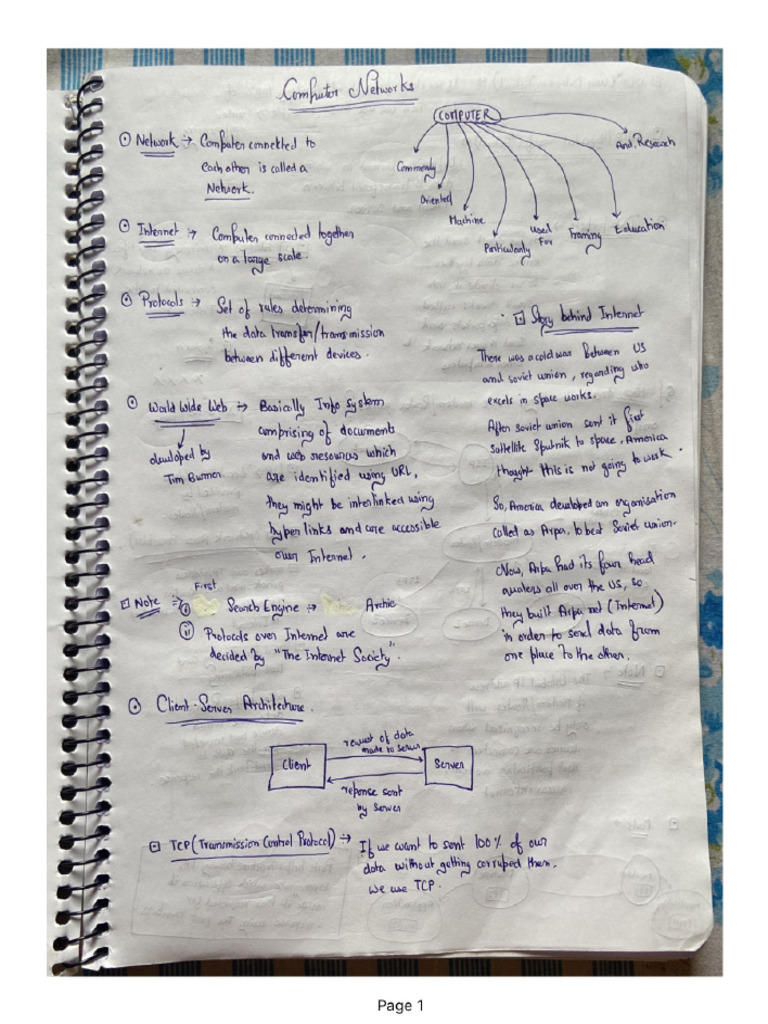 Computer Networks
COMPUTER
Commonly
Oriented
Machine
Particularly
used
For
Training
Education
And, Research
Network → Computer connekted to
each other is called a
Network.
Internet → Computer connected together
on a large scale.
Protocols → Set of rules determining
the data transfer/transmission
between different devices.
World Wide Web → Basically Info System
developed by
Tim Burner
comprising of documents
and web resources which
are identified using URL,
they might be interlinked using
hyper links and are accessible
over Internet.
Note →
First
(i) Search Engine → Archie
(ii) Protocols over Internet are
decided by "The Internet Society".
Story behind Internet
There was a cold war Between US
and soviet union, regarding who
excels in space works.
After soviet union sent it first
sattellite Sputnik to space, America
thought this is not going to work.
So, America developed an organisation
called as Arpa, to beat Soviet union.
Now, Arpa had its four head
quaters all over the US, so
they built Arpa net (Internet)
in order to send data from
one place to the other.
Client-Server Architecture.
Client
request of data
made to server
Server
reponse sent
by server
TCP (Transmission Control Protocol) → If we want to sent 100% of our
data without getting corruped then.
we use TCP.
Page 1